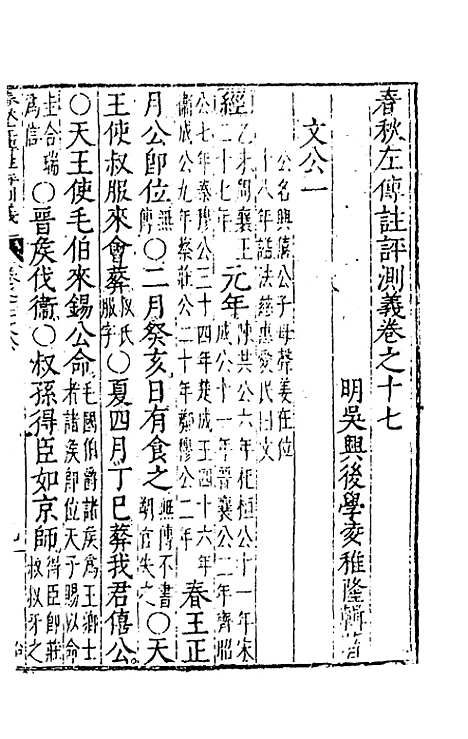 春秋左傳註評測義卷之十七
明吳興後學凌稚隆輯著
文公一
公名興僖公子母聲姜在位
十八年諡法慈惠愛民曰文
經乙未周襄王二十七年元年陳共公六年杞桓公十一年宋成公十一年晉襄公二年齊昭
公七年秦穆公三十四年楚成王四十六年
衛成公九年蔡莊公二十年鄭穆公二年春王正
月公卽位無傳〇二月癸亥日有食之無傳不書朔官失之〇天
王使叔服來會葬叔氏服字〇夏四月丁巳葬我君僖公
〇天王使毛伯來錫公命毛國伯爵諸矦爲王卿士者諸矦卽位天子賜以命
圭合瑞爲信〇晉矦伐衛〇叔孫得臣如京師得臣卽莊叔叔牙之